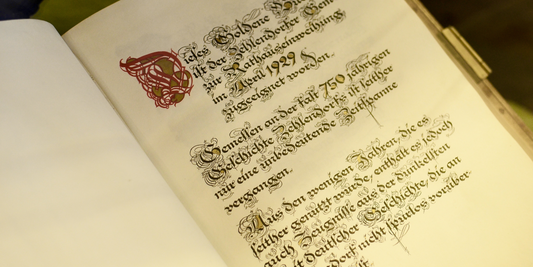 Dieses Goldene
ist der Zehlendorfer Gem
zur Rathauseinweihung
im April 1929
zugeeignet worden.
Gemessen an der fast 750 jährigen
Geschichte Zehlendorfs ist seither
nur eine unbedeutende Zeitspanne
vergangen.
Aus den wenigen Jahren, die es
seither genutzt wurde, enthält es jedoch
auch Zeugnisse aus der dunkelsten
deutscher Geschichte, die an
dorf nicht spurlos vorüber